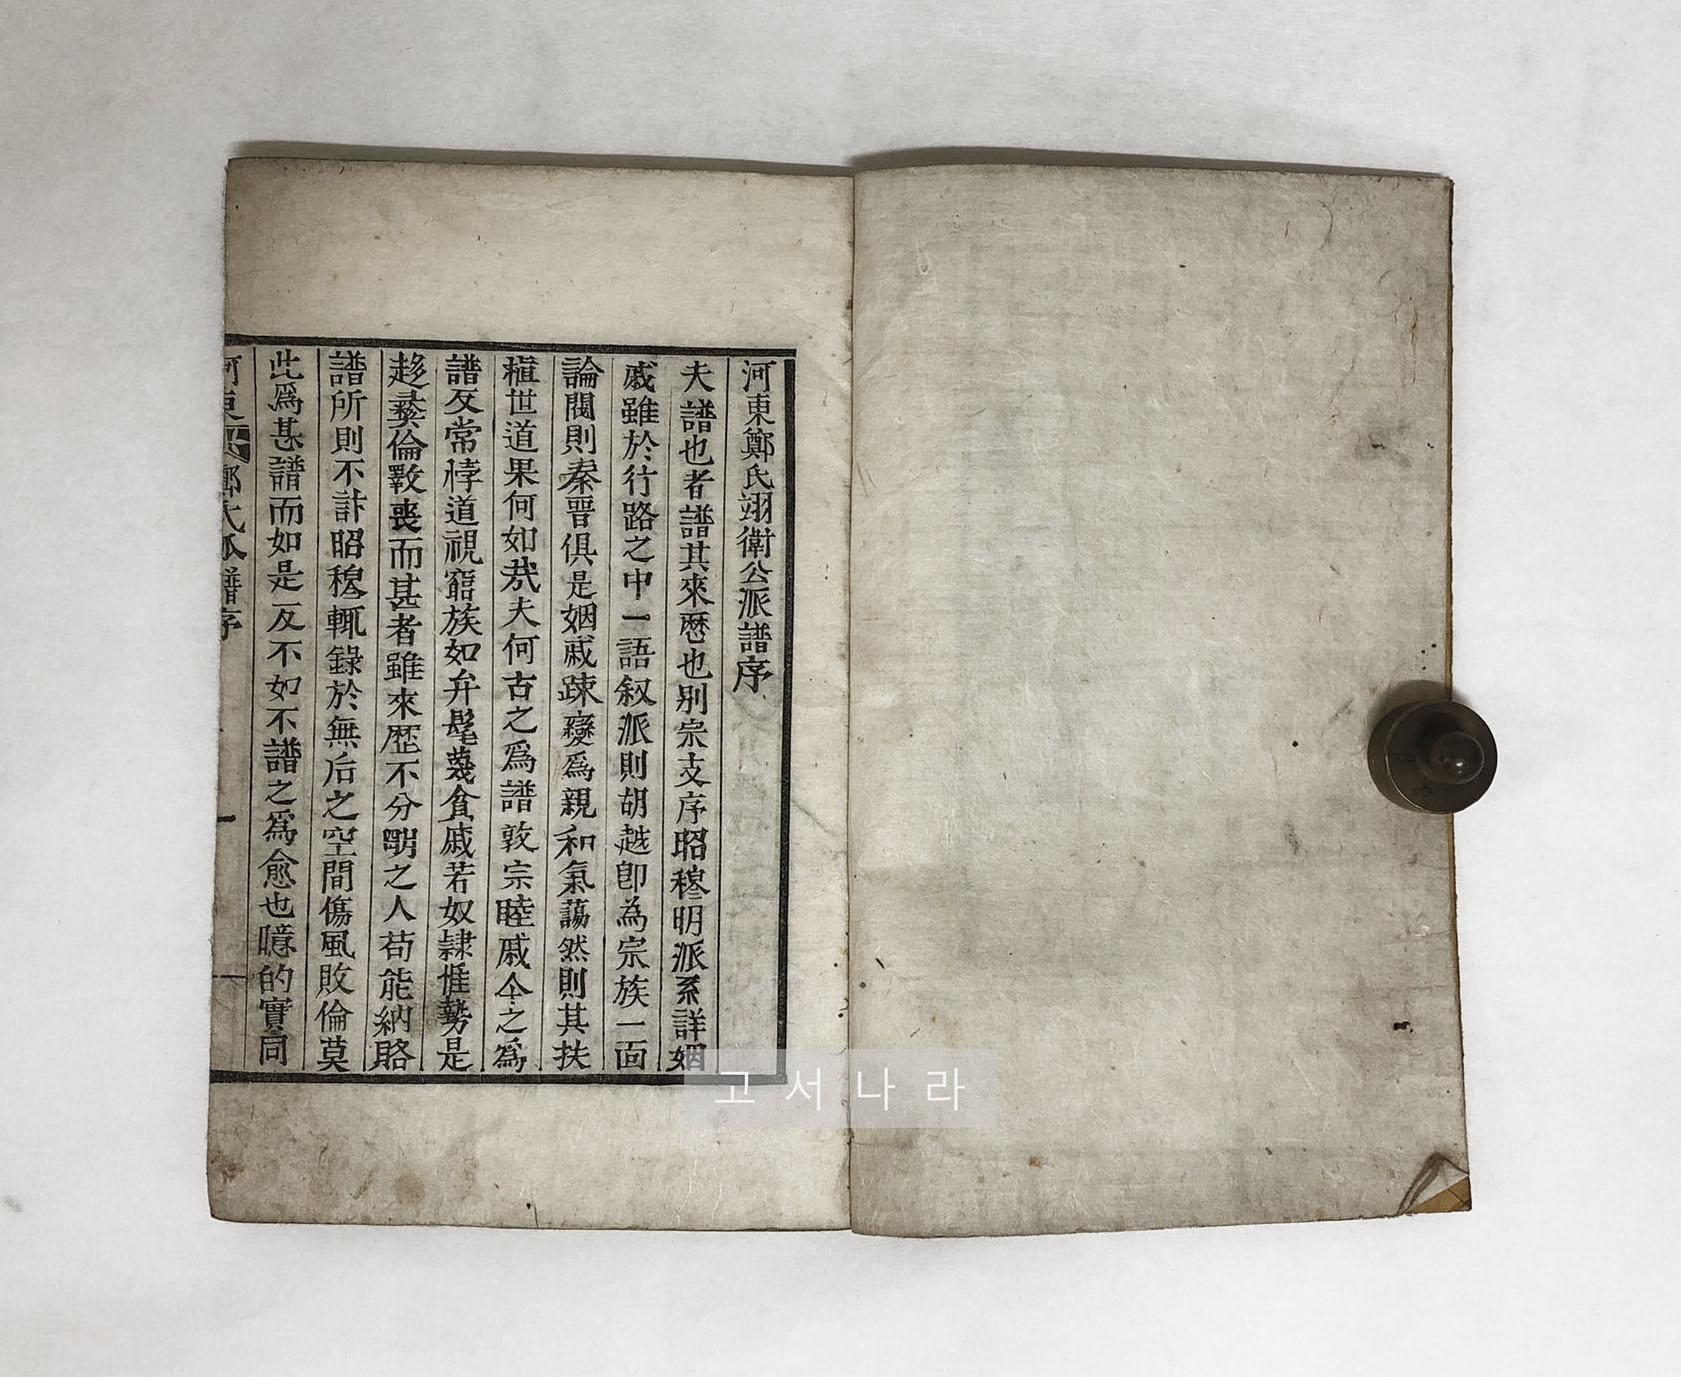 河東鄭氏翊衛公派譜序
夫譜也者譜其來歷也別宗支序昭穆明派系詳姻
戚雖於行路之中一語叙派則胡越卽為宗族一面
論閥則秦晋俱是姻戚踈變爲親和氣藹然則其扶
植世道果何如㢤夫何古之爲譜敦宗睦戚今之爲
譜反常悖道視窮族如弁髦蔑貧戚若奴隷惟勢是
趍彛倫斁喪而甚者雖來歷不分明之人苟能納賂
譜所則不計昭穆輒錄於無后之空間傷風敗倫莫
此爲甚譜而如是反不如不譜之爲愈也噫的實同
河東鄭氏派譜序 一
고서나라